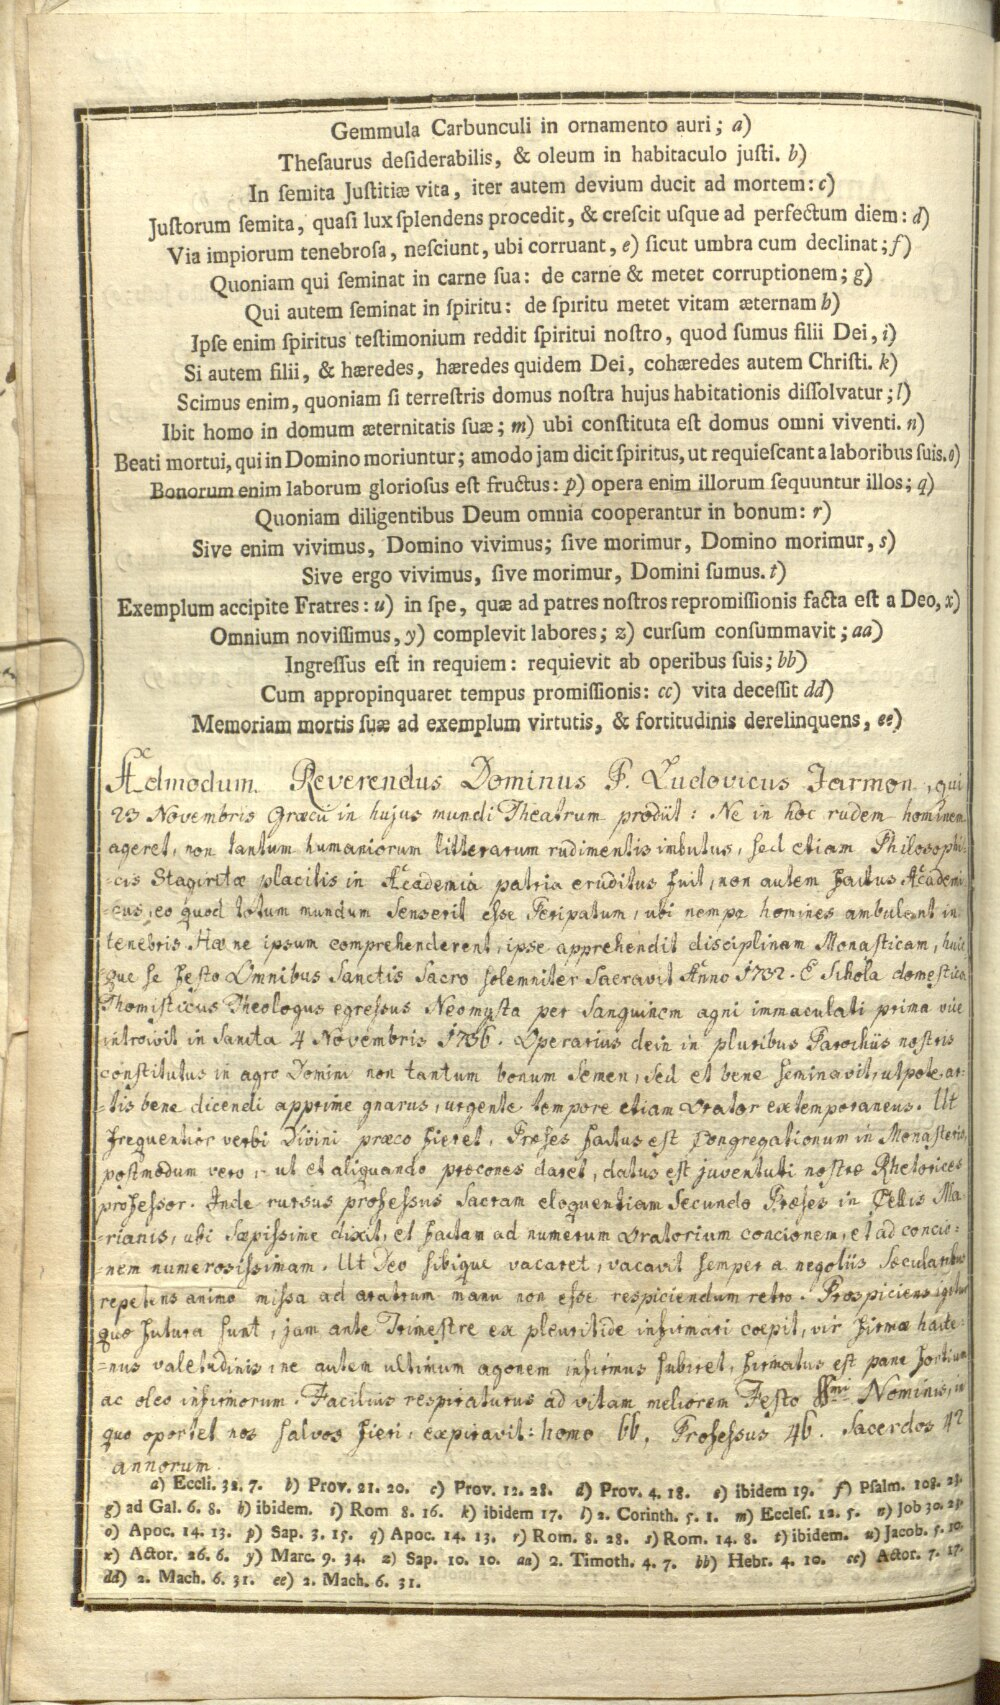 Gemmula Carbunculi in ornamento auri; a)
Theſaurus deſiderabilis, & oleum in habitaculo juſti. b)
In ſemita Juſtitiæ vita, iter autem devium ducit ad mortem: c)
Juſtorum ſemita, quaſi lux ſplendens procedit, & creſcit uſque ad perfectum diem: d)
Via impiorum tenebroſa, neſciunt, ubi corruant, e) ſicut umbra cum declinat; f)
Quoniam qui ſeminat in carne ſua: de carne & metet corruptionem; g)
Qui autem ſeminat in ſpiritu: de ſpiritu metet vitam æternam h)
Ipſe enim ſpiritus teſtimonium reddit ſpiritui noſtro, quod ſumus filii Dei, i)
Si autem filii, & hæredes, hæredes quidem Dei, cohæredes autem Chriſti. k)
Scimus enim, quoniam ſi terreſtris domus noſtra hujus habitationis diſſolvatur; l)
Ibit homo in domum æternitatis ſuæ; m) ubi conſtituta eſt domus omni viventi. n)
Beati mortui, qui in Domino moriuntur; amodo jam dicit ſpiritus, ut requieſcant a laboribus ſuis. o)
Bonorum enim laborum glorioſus eſt fructus: p) opera enim illorum ſequuntur illos; q)
Quoniam diligentibus Deum omnia cooperantur in bonum: r)
Sive enim vivimus, Domino vivimus; ſive morimur, Domino morimur, s)
Sive ergo vivimus, ſive morimur, Domini ſumus. t)
Exemplum accipite Fratres: u) in ſpe, quæ ad patres noſtros repromiſſionis facta eſt a Deo, x)
Omnium noviſſimus, y) complevit labores; z) curſum conſummavit; aa)
Ingreſſus eſt in requiem: requievit ab operibus ſuis; bb)
Cum appropinquaret tempus promiſſionis: cc) vita deceſſit dd)
Memoriam mortis ſuæ ad exemplum virtutis, & fortitudinis derelinquens, ee)
Admodum Reverendus Dominus P. Ludovicus Jarmon, qui
23 Novembris Græcii in hujus mundi Theatrum prodiit: Ne in hoc rudem hominem
ageret, non tantum humaniorum litterarum rudimentis imbutus, sed etiam Philosophi-
-cis Stagiritæ placitis in Academia patria eruditus fuit, non autem factus Academi
-cus, eo quod totum mundum senserit esse Peripatum, ubi nempe homines ambulant in
tenebris. Hæ ne ipsum comprehenderent, ipse apprehendit disciplinam Monasticam, huic
que se Festo Omnibus Sanctis Sacro solemniter Sacravit Anno 1732. E Schola domestica
Thomisticus Theologus egressus Neomysta per Sanguinem agni immaculati prima vice
introivit in Sancta 4 Novembris 1736. Operarius dein in pluribus Parochiis nostris
constitutus in agro Domini non tantum bonum semen, sed et bene seminavit, utpote ar-
-tis bene dicendi apprime gnarus, urgente tempore etiam Orator extemporaneus. Ut
frequentior verbi Divini præco fieret, Præses factus est Congregationum in Monasterio,
postmodum vero, ut et aliquando præcones daret, datus est juventuti nostræ Rhetorices
professor. Inde rursus professus Sacram eloquentiam Secundo Præses in Cellis Ma-
-rianis, ubi sæpissime dixit, et factam ad numerum Oratorium concionem, et ad concio-
-nem numerosissimam. Ut Deo sibique vacaret, vacavit semper a negotiis Sæcularibus
repetens animo missa ad aratrum manu non esse respiciendum retro. Prospiciens igitur
quæ futura sunt, jam ante Trimestre ex pleuritide infirmari coepit, vir firmæ hacte-
-nus valetudinis, ne autem ultimum agonem infirmus subiret, firmatus est pane fortium
ac oleo infirmorum. Facilius respiraturus ad vitam meliorem Festo SSmi Nominis, in
quo oportet nos salvos fieri, expiravit: homo 66, Professus 46. Sacerdos 42
annorum.
a) Eccli. 32. 7. b) Prov. 21. 20. c) Prov. 12. 28. d) Prov. 4. 18. e) ibidem 19. f) Pſalm. 108. 23.
g) ad Gal. 6. 8. h) ibidem. i) Rom 8. 16. k) ibidem 17. l) 2. Corinth. 5. 1. m) Eccleſ. 12. 5. n) Job 30. 23.
o) Apoc. 14. 13. p) Sap. 3. 15. q) Apoc. 14. 13. r) Rom. 8. 28. s) Rom. 14. 8. t) ibidem. u) Jacob. 5. 10.
x) Actor. 26. 6. y) Marc. 9. 34. z) Sap. 10. 10. aa) 2. Timoth. 4. 7. bb) Hebr. 4. 10. cc) Actor. 7. 17.
dd) 2. Mach. 6. 31. ee) 2. Mach. 6. 31.